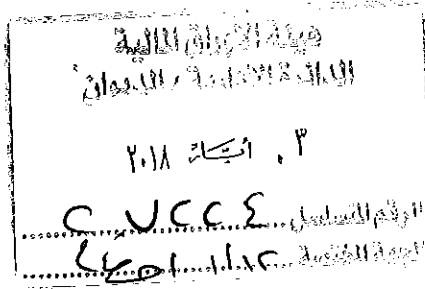 هيئة الأوراق المالية
الدائرة الادارية / الديوان
٠٣ أيــار ٢٠١٨
الرقم المتسلسل ٢٧٢٢٤
الجهة المختصة